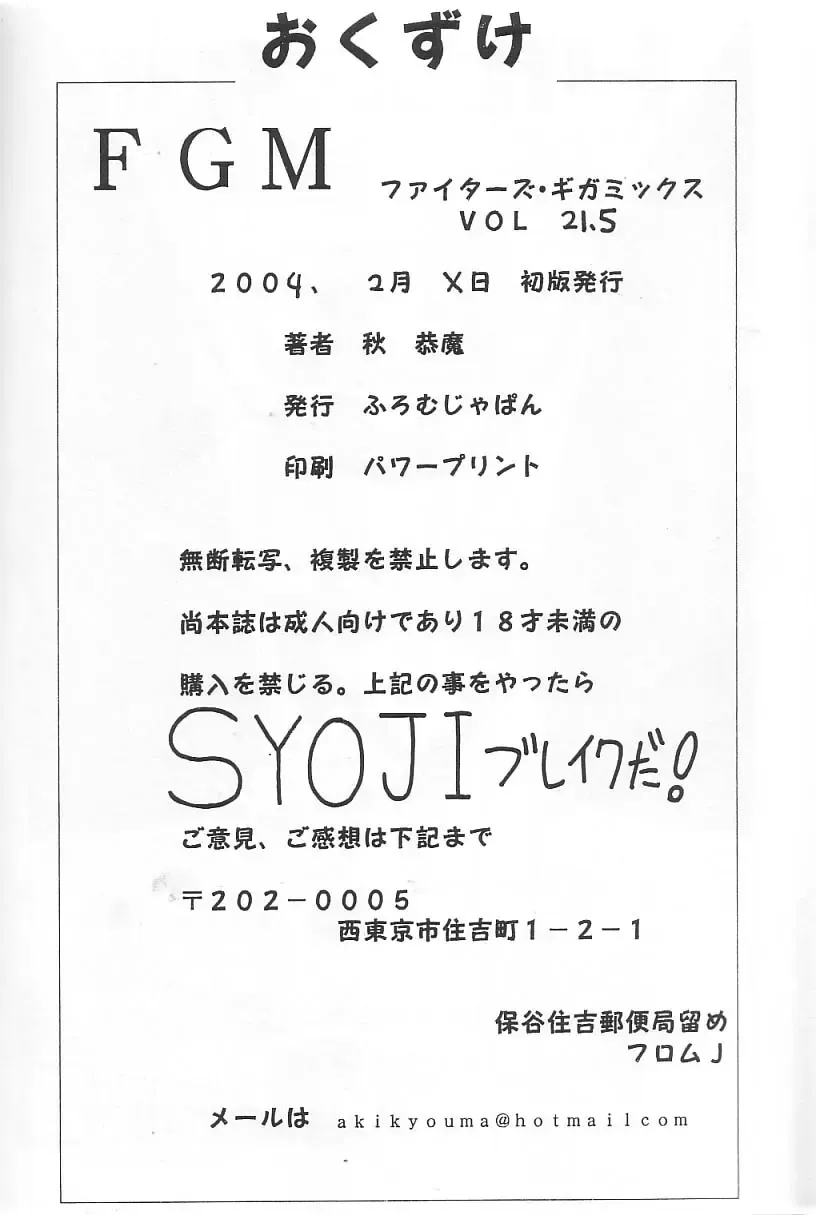 おくずけ
FGM
ファイターズ・ギガミックス
VOL 21.5
2004、 2月 X日 初版発行
著者 秋 恭魔
発行 ふろむじゃぱん
印刷 パワープリント
無断転写、複製を禁止します。
尚本誌は成人向けであり18才未満の
購入を禁じる。上記の事をやったら
SYOJIブレイクだ!
ご意見、ご感想は下記まで
〒202-0005
西東京市住吉町1-2-1
保谷住吉郵便局留め
フロムJ
メールは akikyouma@hotmailcom